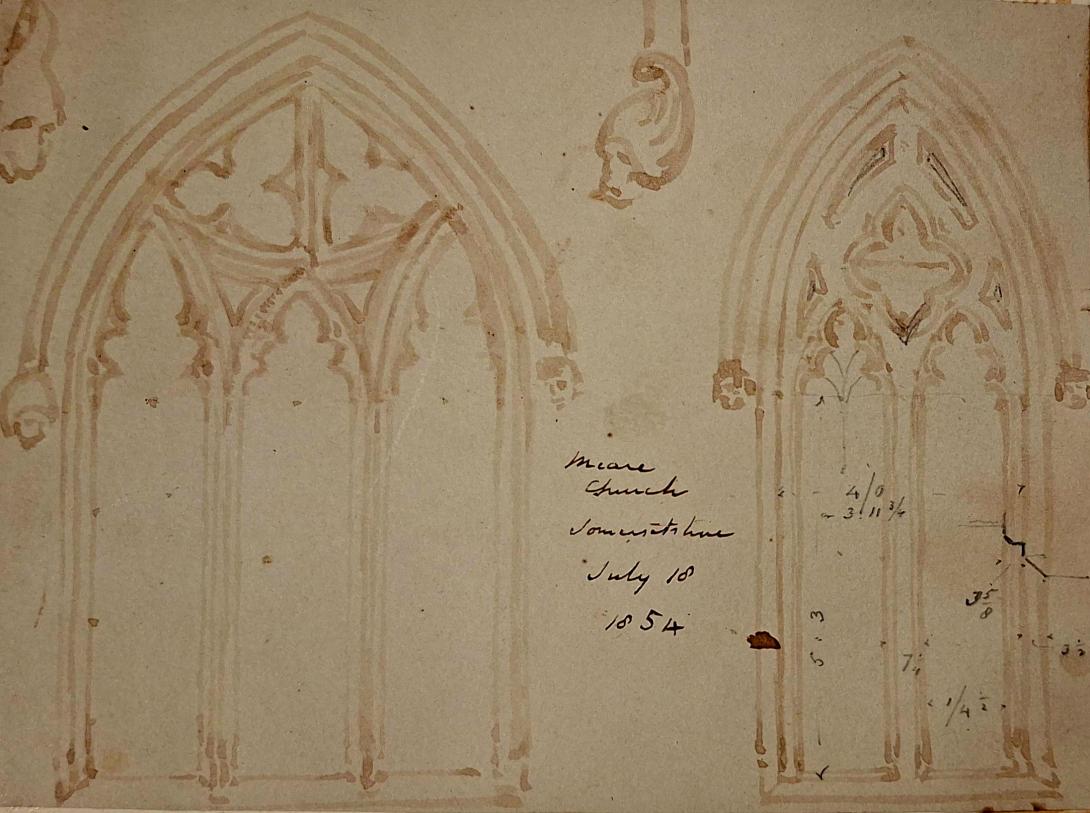 Meare
Church
Somersetshire
July 18
1854
4/0
3.11 3/4
3 5/8
5.3
7 1/4
3 1/2
1/4 1/2